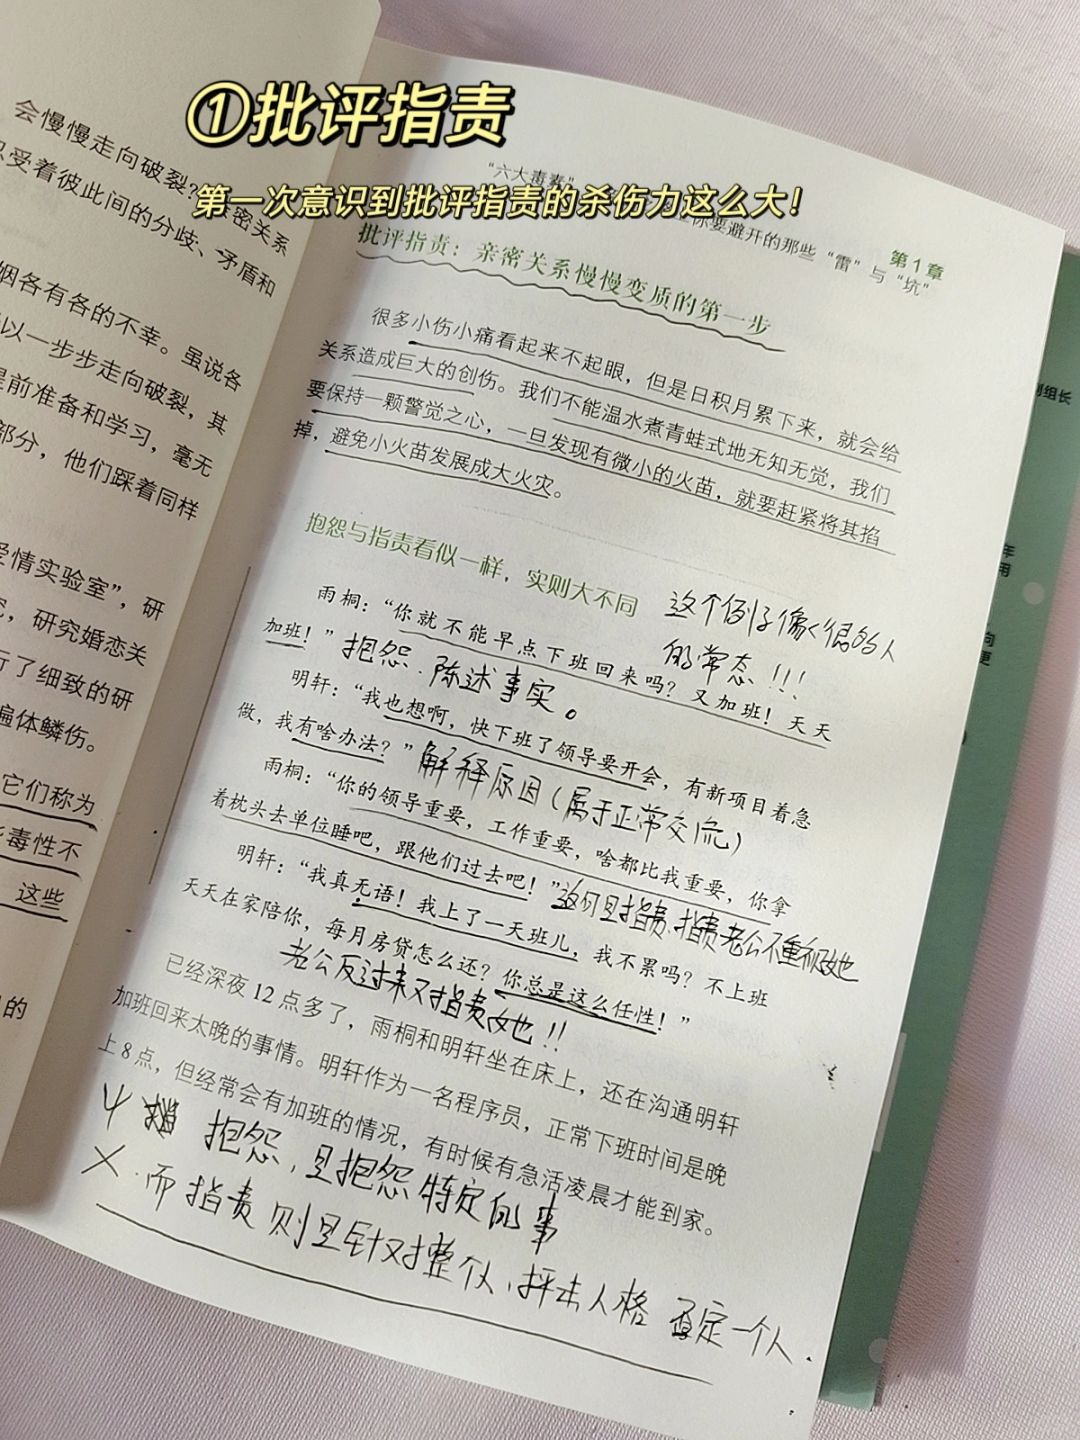 ①批评指责
第一次意识到批评指责的杀伤力这么大！
会慢慢走向破裂？
密关系
受着彼此间的分歧、矛盾和
姻各有各的不幸。虽说各
以一步步走向破裂，其
前准备和学习，毫无
部分，他们踩着同样
爱情实验室”，研
，研究婚恋关
行了细致的研
遍体鳞伤。
它们称为
毒性不
这些
的
“六大毒素”
你要避开的那些“雷”与“坑”
第1章
批评指责：亲密关系慢慢变质的第一步
很多小伤小痛看起来不起眼，但是日积月累下来，就会给
关系造成巨大的创伤。我们不能温水煮青蛙式地无知无觉，我们
要保持一颗警觉之心，一旦发现有微小的火苗，就要赶紧将其掐
掉，避免小火苗发展成大火灾。
抱怨与指责看似一样，实则大不同
这个例子像很多人
的常态！！！
雨桐：“你就不能早点下班回来吗？又加班！天天
加班！”
抱怨、陈述事实。
明轩：“我也想啊，快下班了领导要开会，有新项目着急
做，我有啥办法？”
解释原因（属于正常交流）
雨桐：“你的领导重要，工作重要，啥都比我重要，你拿
着枕头去单位睡吧，跟他们过去吧！”
这句是指责，指责老公不重视她
明轩：“我真无语！我上了一天班儿，我不累吗？不上班
天天在家陪你，每月房贷怎么还？你总是这么任性！”
老公反过来又指责她！！
已经深夜12点多了，雨桐和明轩坐在床上，还在沟通明轩
加班回来太晚的事情。明轩作为一名程序员，正常下班时间是晚
上8点，但经常会有加班的情况，有时候有急活凌晨才能到家。
抱怨，是抱怨特定的事
×.而指责则是针对整个人、抨击人格 否定一个人.
副组长